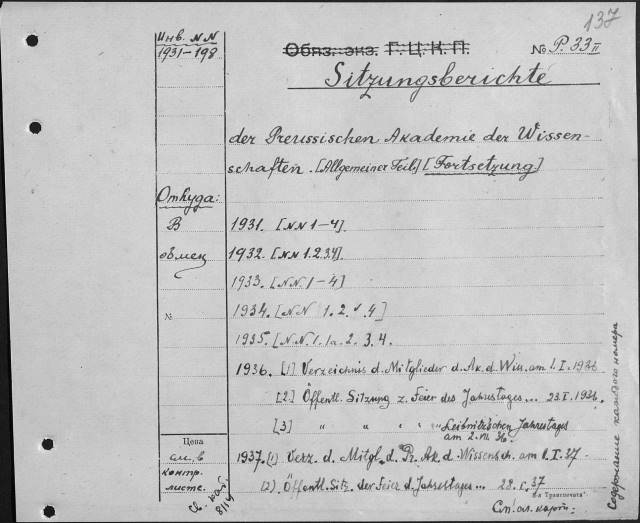 137
Инв. NN
1931-198
Обяз. экз. Г. Ц. К. П.
№ P. 33 II
Sitzungsberichte
der Preussischen Akademie der Wissen-
schaften. [Allgemeiner Teil.] [Fortsetzung]
Откуда:
В
обмен
№
1931. [NN 1-4].
1932. [NN 1.2.3.4].
1933. [NN. 1-4]
1934. [NN 1. 2. 4]
1935. [NN. 1. 1a. 2. 3. 4.
1936. [1] Verzeichnis d. Mitglieder d. Ak. d. Wiss. am 1. I. 1936
[2.] Öffentl. Sitzung z. Feier des Jahrestages... 23. I. 1936.
[3] " " " " " Leibnizischen Jahrestages
am 2. VII. 36.
Цена
см. в
контр.
листе.
1937. (1) Verz. d. Mitgl. d. Pr. Ak. d. Wissensch. am 1. I. 37
(2). Öffentl. Sitz. der Feier d. Jahrestages... 28. I. 37
Транспечать"
См. сл. карт.
Содержание каждого номера